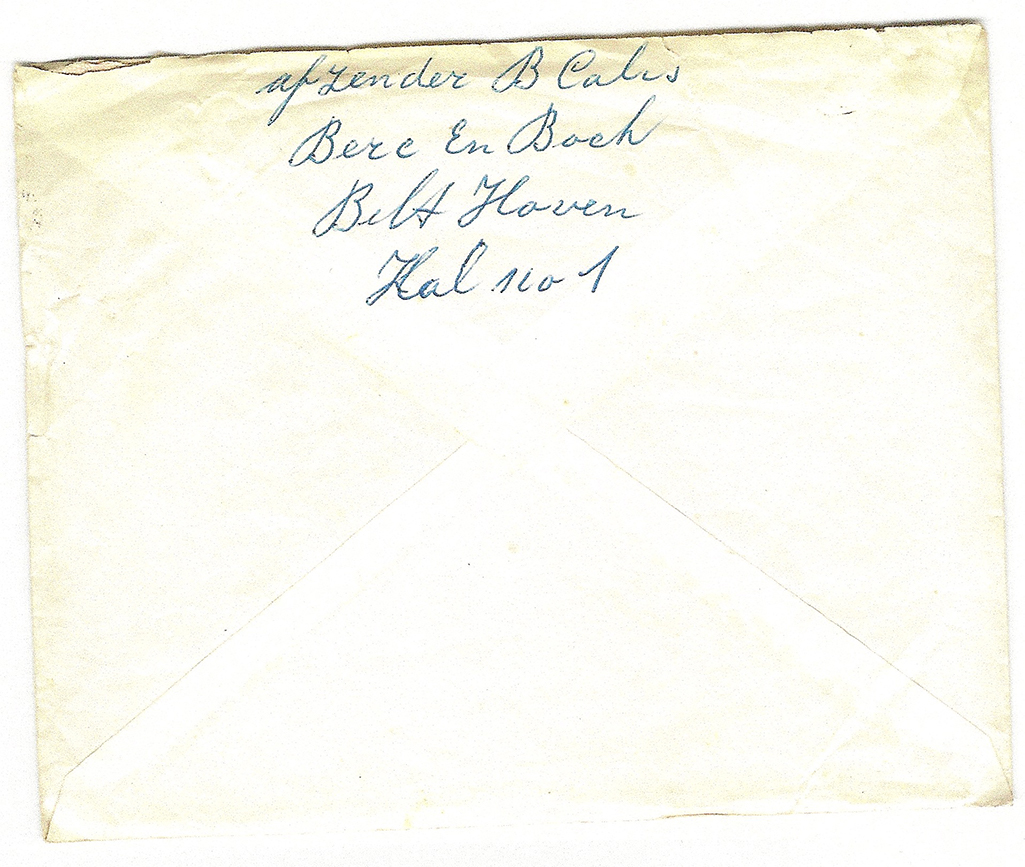 afzender B Calis
Berc En Boch
Bilt Hoven
Hal no 1